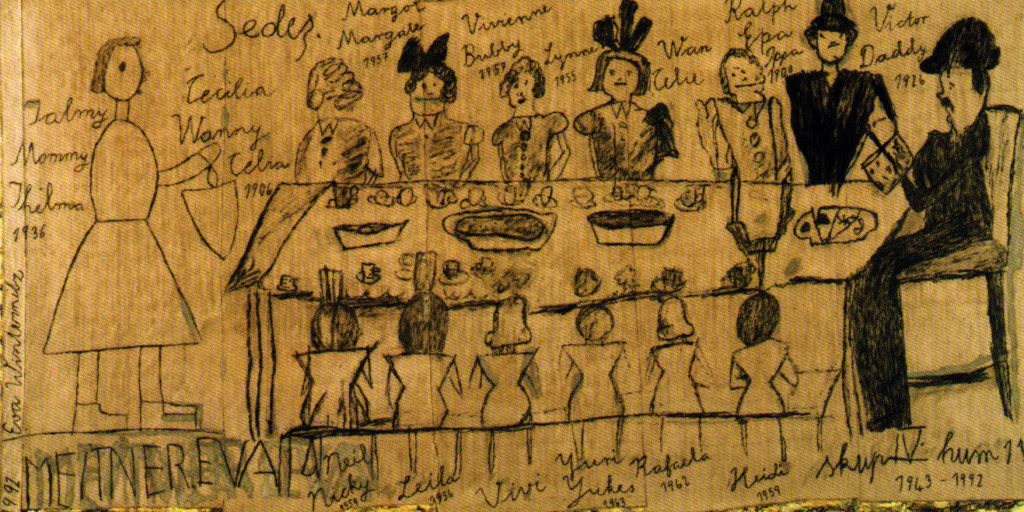 Seder.
Margot
Margate
1957
Vivienne
Bubby
1957
Lynne
1955
Wan
Celie
Ralph
Epa
1900
Victor
Daddy
1926
Talmy
Mommy
Thelma
1936
Cecilia
Wanny
Celia
1906
Eva
9.92
MEITNER.EVA
Neil
Nicky
1959
Leila
1956
Vivi
Yuri
Yukes
1963
Rafaela
1967
Heidi
1959
skup IV. hum
1963 - 1992